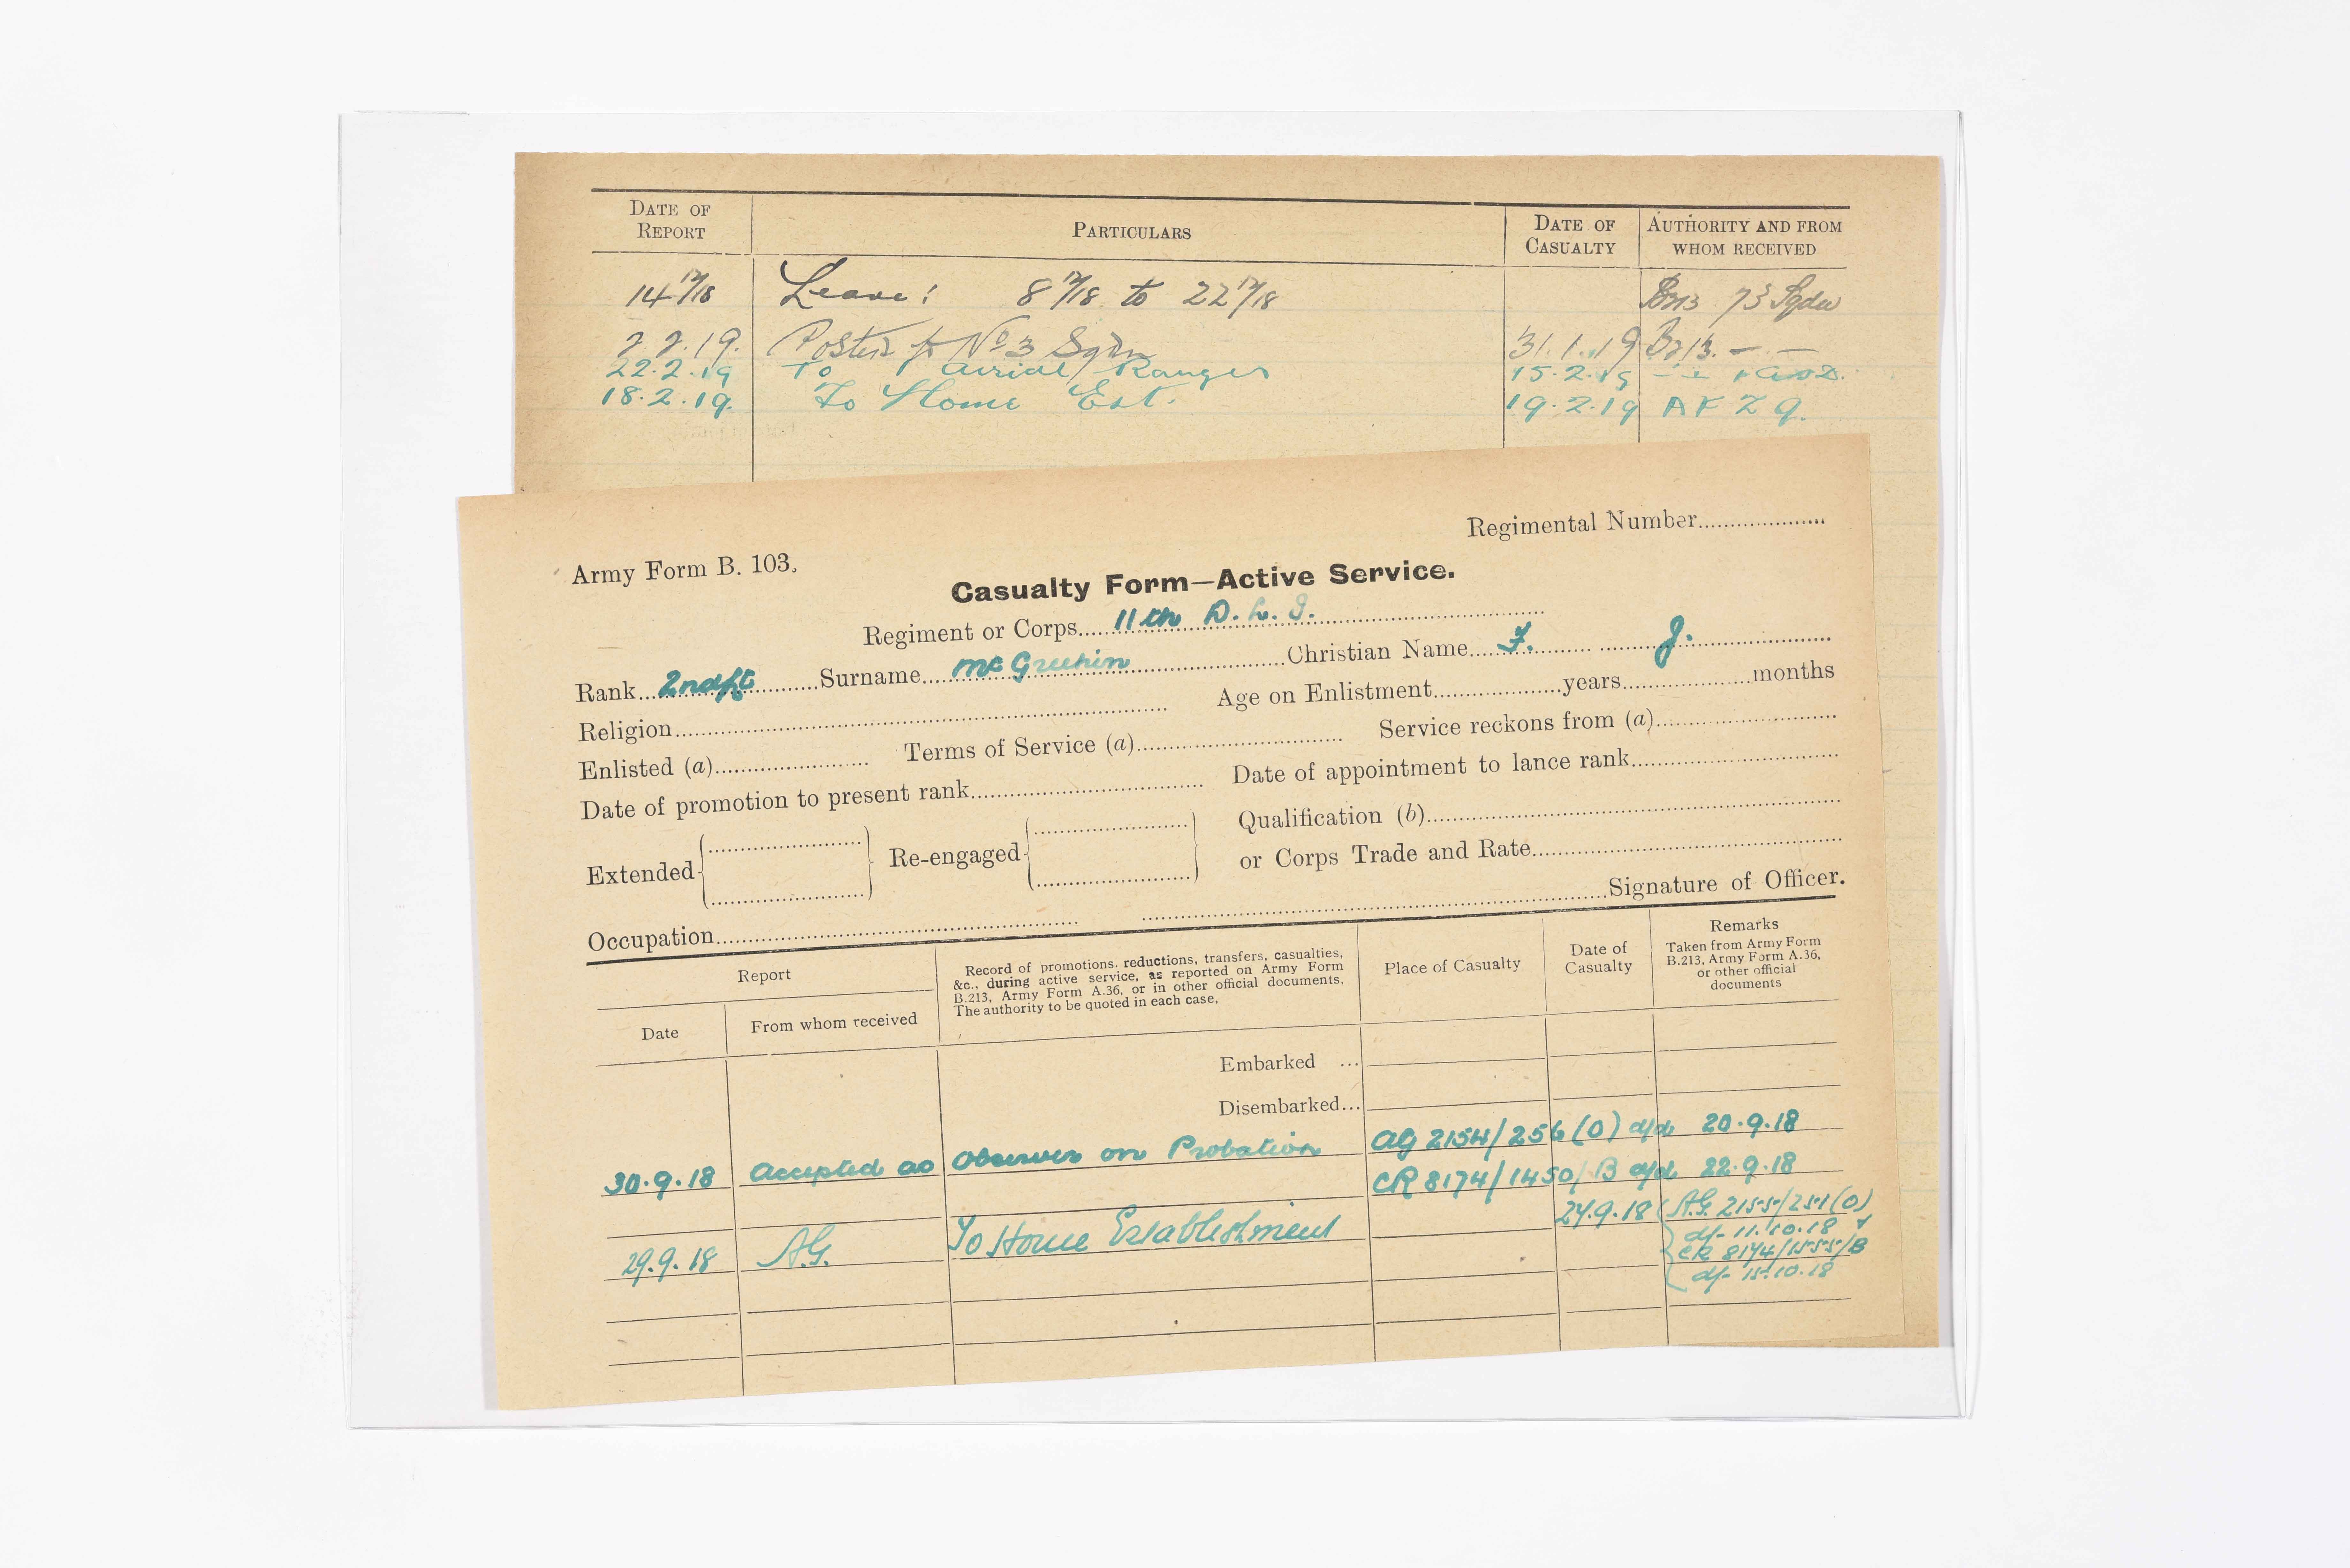 DATE OF REPORT PARTICULARS DATE OF CASUALTY AUTHORITY AND FROM WHOM RECEIVED
14 12/18 Leave: 8 12/18 to 22 12/18 73 Sqdn
2.2.19. Posted to No 3 Sqdn 31.1.19 B213. — . —
22.2.19 To Aerial Ranges 15.2.19
18.2.19. To Home Est. 19.2.19 AF Z 9.
Regimental Number
Army Form B. 103.
Casualty Form—Active Service.
Regiment or Corps 11th D.L.I.
Rank 2nd Lt Surname Christian Name F. J.
Religion Age on Enlistment years months
Enlisted (a) Terms of Service (a) Service reckons from (a)
Date of promotion to present rank Date of appointment to lance rank
Extended Re-engaged Qualification (b)
or Corps Trade and Rate
Occupation Signature of Officer.
Report
Date From whom received
Record of promotions, reductions, transfers, casualties,
&c., during active service, as reported on Army Form
B.213, Army Form A.36, or in other official documents.
The authority to be quoted in each case.
Place of Casualty
Date of Casualty
Remarks
Taken from Army Form
B.213, Army Form A.36,
or other official
documents
Embarked ...
Disembarked...
30.9.18 Accepted as Observer on Probation AG 2154/256 (O) d/d 20.9.18
CR 8174/1450/B d/d 22.9.18
29.9.18 A.G. To Home Establishment 24.9.18 A.G. 2155/251 (O)
d/- 11.10.18 &
CR 8174/1555/B
d/- 15.10.18